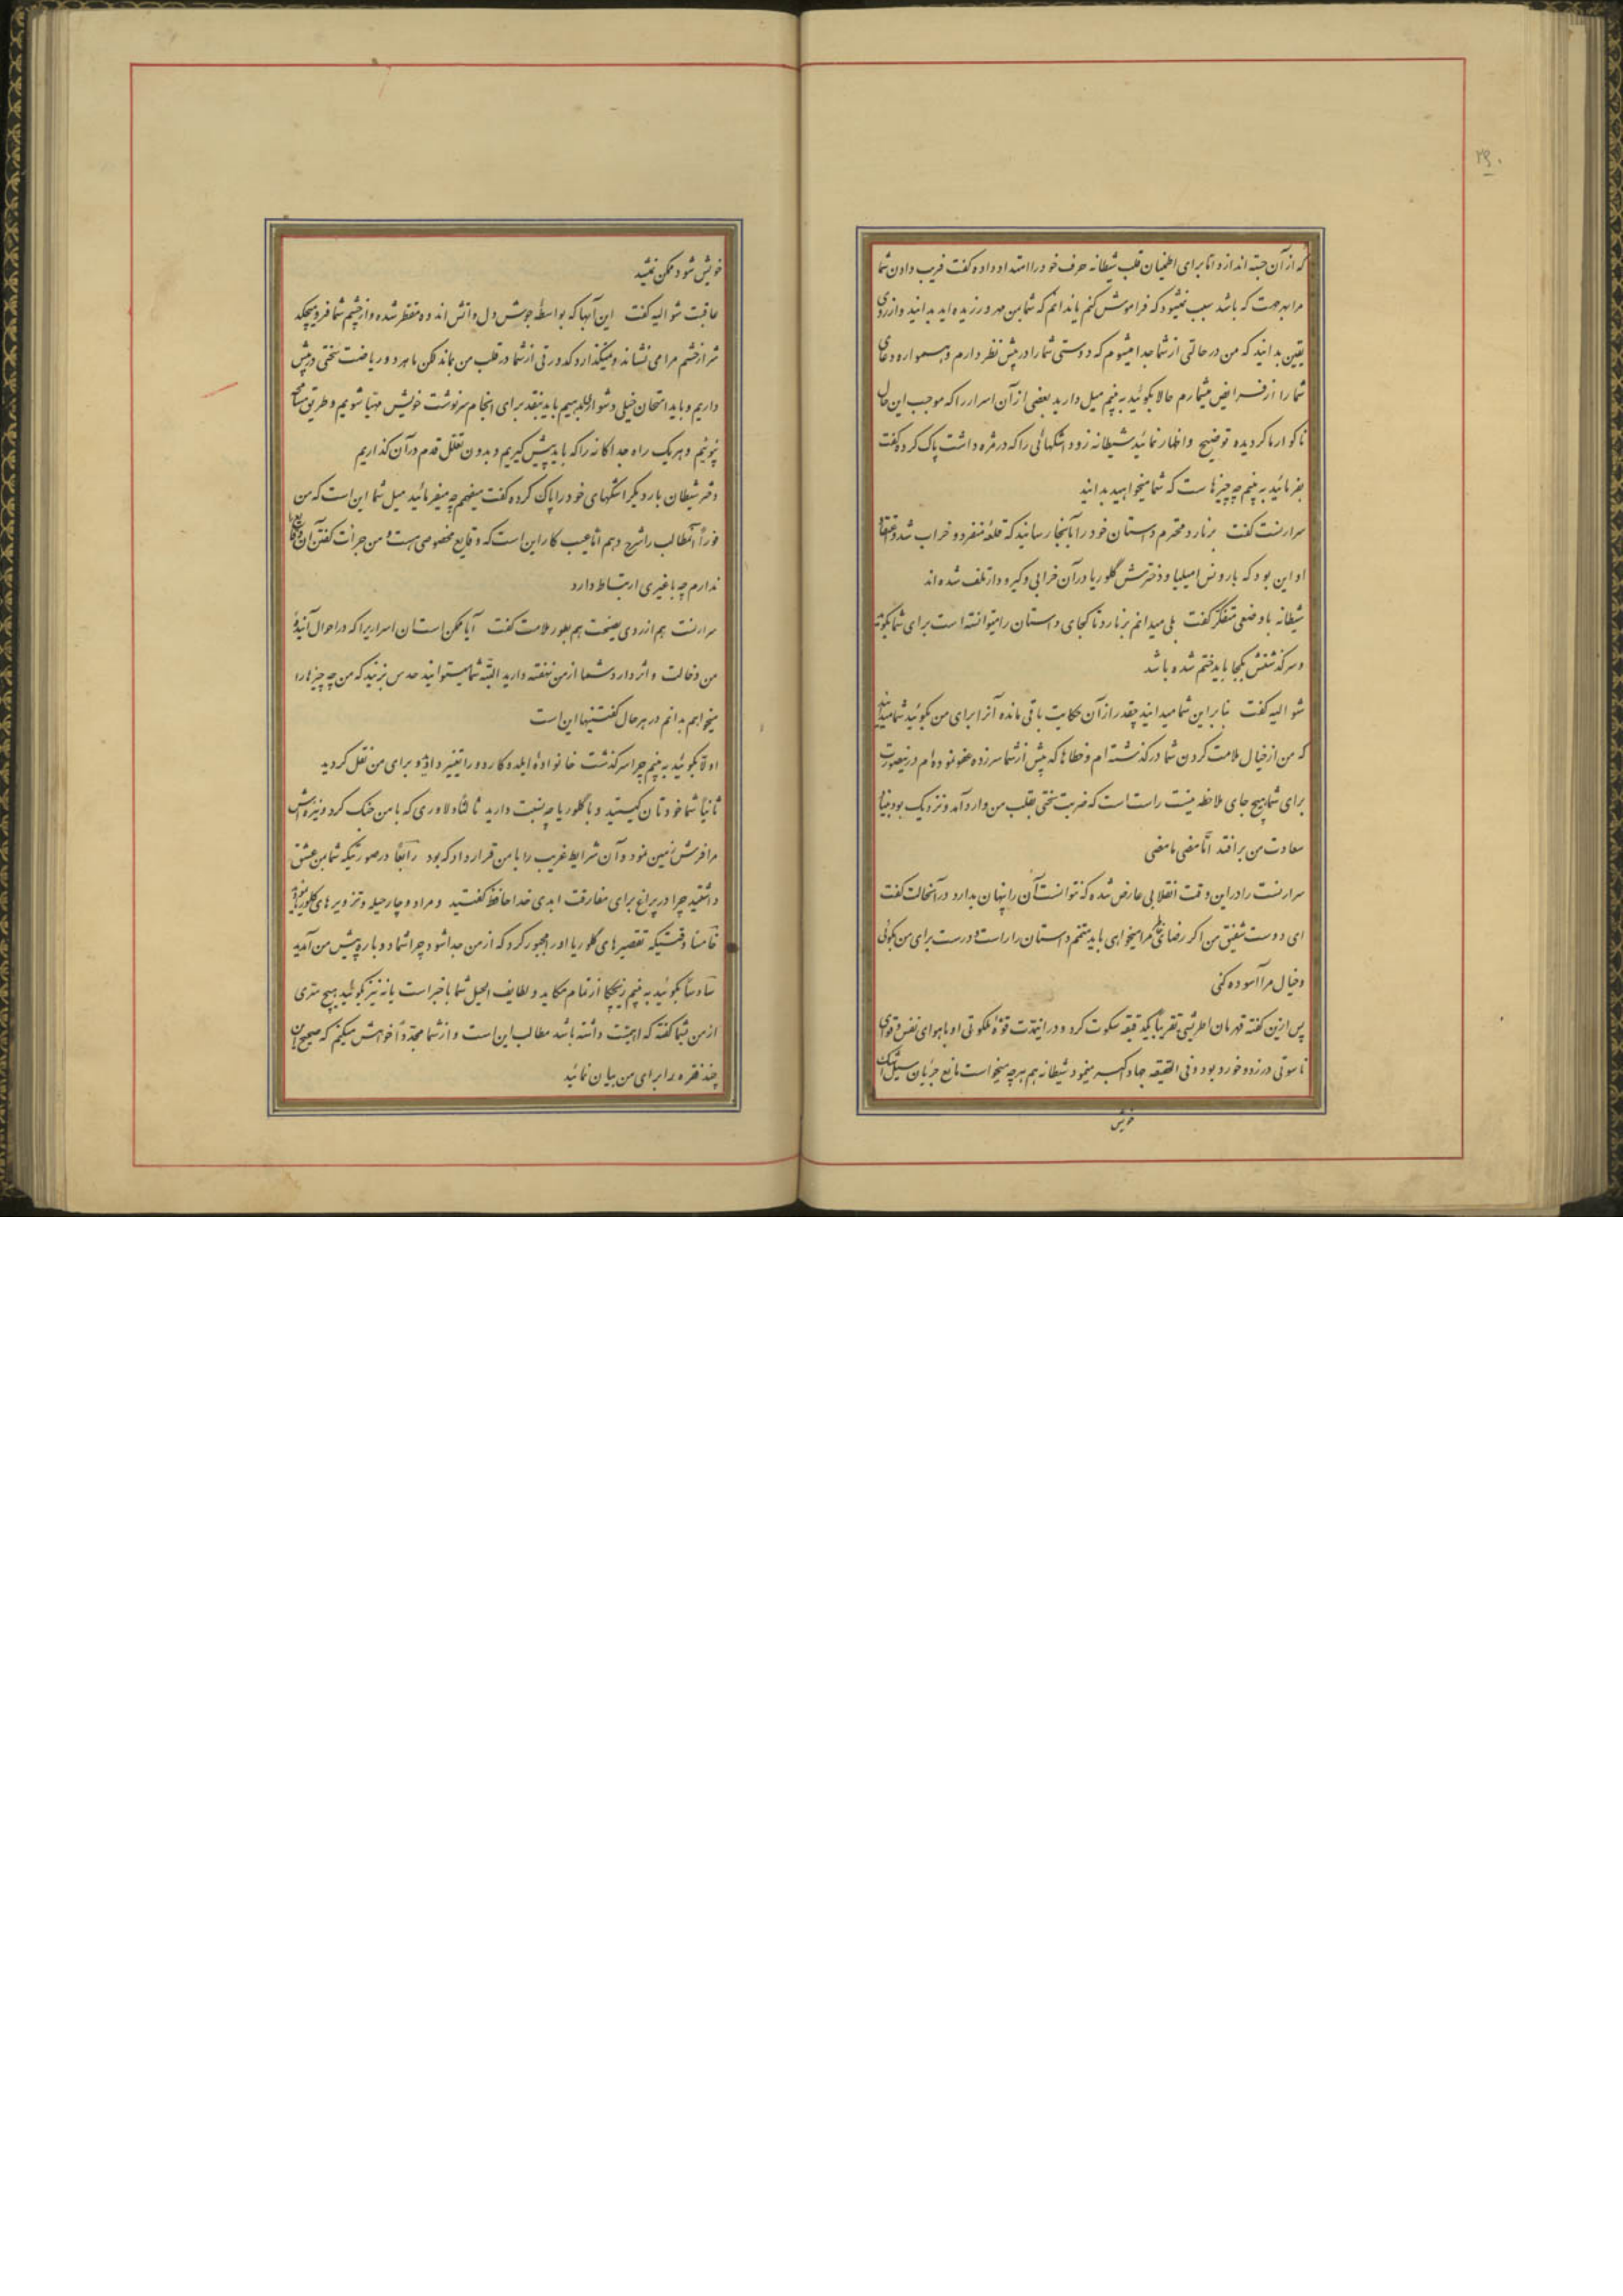 که از آن جسته اندازد اما برای اطمینان قلب شیطانه حرف خود را امتداد داده گفت فریب دادن شما
مرا بهر جهت که باشد سبب نمیشود که فراموش کنم یا ندانم که شما بمن مهر ورزیده اید بدانید و از روی
یقین بدانید که من در حالتی از شما جدا میشوم که دوستی شما را در پیش نظر دارم و همواره دعای
شما را از فرایض میشمارم حالا بگوئید به بینم میل دارید بعضی از آن اسرار را که موجب این حال
ناگوار ما گردیده توضیح و اظهار نمائید شیطانه زود اشکهائی را که در مژه داشت پاک کرده گفت
بفرمائید به بینم چه چیزها ست که شما میخواهید بدانید
سرارنست گفت برنارد محترم داستان خود را بآنجا رسانید که قلعه منفرد و خراب شد و عقیده
او این بود که بارونس امیلیا و دخترش گلوریا در آن خرابی و گیرودار تلف شده اند
شیطانه با وضعی متفکر گفت بلی میدانم برنارد تا کجای داستان را میتوانسته است برای شما بگوید
و سرگذشتش بکجا باید ختم شده باشد
شوالیه گفت بنابراین شما میدانید چقدر از آن حکایت باقی مانده آنرا برای من بگوئید شما میدانید
که من از خیال ملامت کردن شما در گذشته ام و خطاها که پیش از شما سر زده عفو نموده ام در نیصورت
برای شما هیچ جای ملاحظه نیست راست است که ضربت سختی بقلب من وارد آمد و نزدیک بود بنیان
سعادت من برافتد اما مضی ما مضی
سرارنست را در این وقت انقلابی عارض شده که نتوانست آن را پنهان بدارد در آنحالت گفت
ای دوست شفیق من اگر رضای خاطر مرا میخواهی باید متمم داستان را راست و درست برای من بگوئی
و خیال مرا آسوده کنی
پس ازین گفته قهرمان اطریشی تقریباً یکدقیقه سکوت کرد و در این مدت قوه ملکوتی او با هوای نفس و قوای
ناسوتی در زد و خورد بود و فی الحقیقه جهاد اکبر مینمود شیطانه هم هر چه میخواست مانع جریان سیل اشک
خویش
خویش شود ممکن نمیشد
عاقبت شوالیه گفت این آبها که بواسطه جوشش دل و آتش اندوه متقطر شده و از چشم شما فرو میچکد
شرار خشم مرا می نشاند و نمیگذارد کدورتی از شما در قلب من بماند لکن ما هر دو ریاضت سختی در پیش
داریم و باید امتحان خیلی دشواری بدهیم باید بنقد برای انجام سرنوشت خویش مهیا شویم و طریق
پوئیم و هر یک راه جداگانه را که باید پیش گیریم و بدون تعلل قدم در آن گذاریم
دختر شیطان بار دیگر اشکهای خود را پاک کرده گفت میفهمم چه میفرمائید میل شما این است که من
فوراً آنمطالب را شرح دهم اما عیب کار این است که وقایع مخصوصی هست و من جرأت گفتن آن وقایع
ندارم چه با غیری ارتباط دارد
سرارنست هم از روی نصیحت هم بطور ملامت گفت آیا ممکن است آن اسراریرا که در احوال آینده
من دخالت و اثر دارد شما از من نهفته دارید البته شما میتوانید حدس بزنید که من چه چیزها را
میخواهم بدانم در هر حال گفتنیها این است
اولاً بگوئید به بینم چرا سرگذشت خانواده ایلده گارد را تغییر داده و برای من نقل کردید
ثانیاً شما خودتان کیستید و با گلوریا چه نسبت دارید ثالثاً دلاوری که با من جنگ کرد و نیزه اش
مرا فرش زمین نمود و آن شرایط غریب را با من قرار داد که بود رابعاً در صورتیکه شما بمن عشق
داشتید چرا در پراغ برای مفارقت ابدی خدا حافظ گفتید و مرا دوچار حیله و تزویرهای گلوریا
خامسا وقتیکه تقصیرهای گلوریا او را مجبور کرد که از من جدا شود چرا شما دوباره پیش من آمدید
سادساً بگوئید به بینم زیچکا از تمام مکاید و لطایف الحیل شما با خبر است یا نه نیز بگوئید هیچ سری
از من بشما گفته که اهمیت داشته باشد مطالب این است و از شما مجدداً خواهش میکنم که صحیح این
چند فقره را برای من بیان نمائید